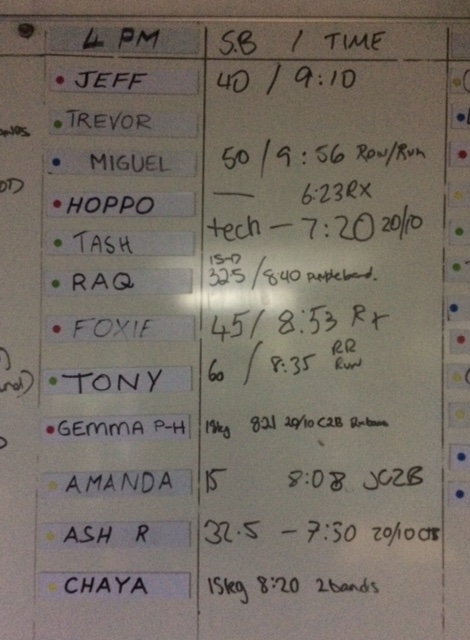 4 PM S.B / TIME
JEFF 40 / 9:10
TREVOR
MIGUEL 50 / 9:56 Row/Run
HOPPO — 6:23 RX
TASH tech — 7:20 20/10
15-17
RAQ 32.5 / 8:40 purple band.
FOXIE 45 / 8:53 Rx
TONY 60 / 8:35 RR Run
GEMMA P-H 15kg 8:21 20/10 C2B
AMANDA 15 8:08 JC2B
ASH R 32.5 - 7:30 20/10
CHAYA 15kg 8:20 2bands